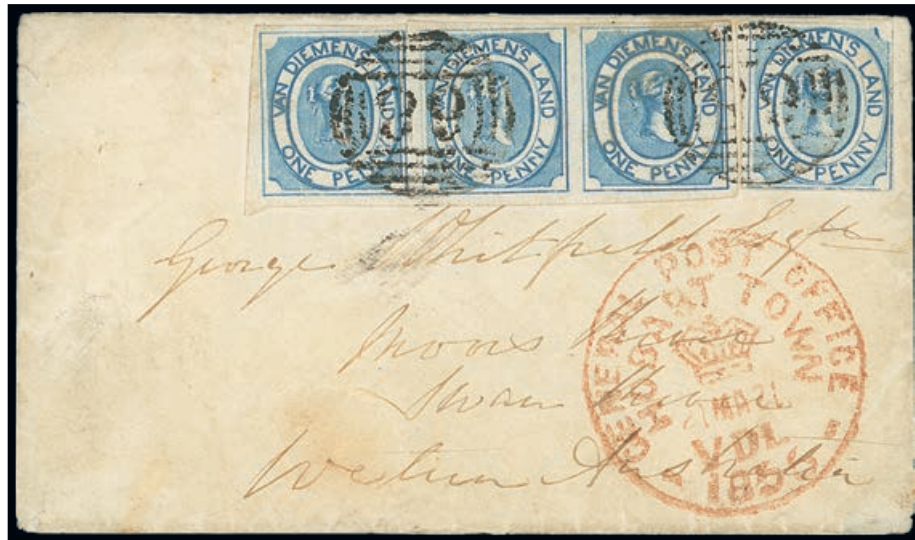 VAN DIEMEN'S LAND
ONE PENNY
VAN DIEMEN'S LAND
ONE PENNY
VAN DIEMEN'S LAND
ONE PENNY
VAN DIEMEN'S LAND
ONE PENNY
George Whitfield Esqre
Swan
Western Australia
GENERAL POST OFFICE
HOBART TOWN
MA
V.D.L.